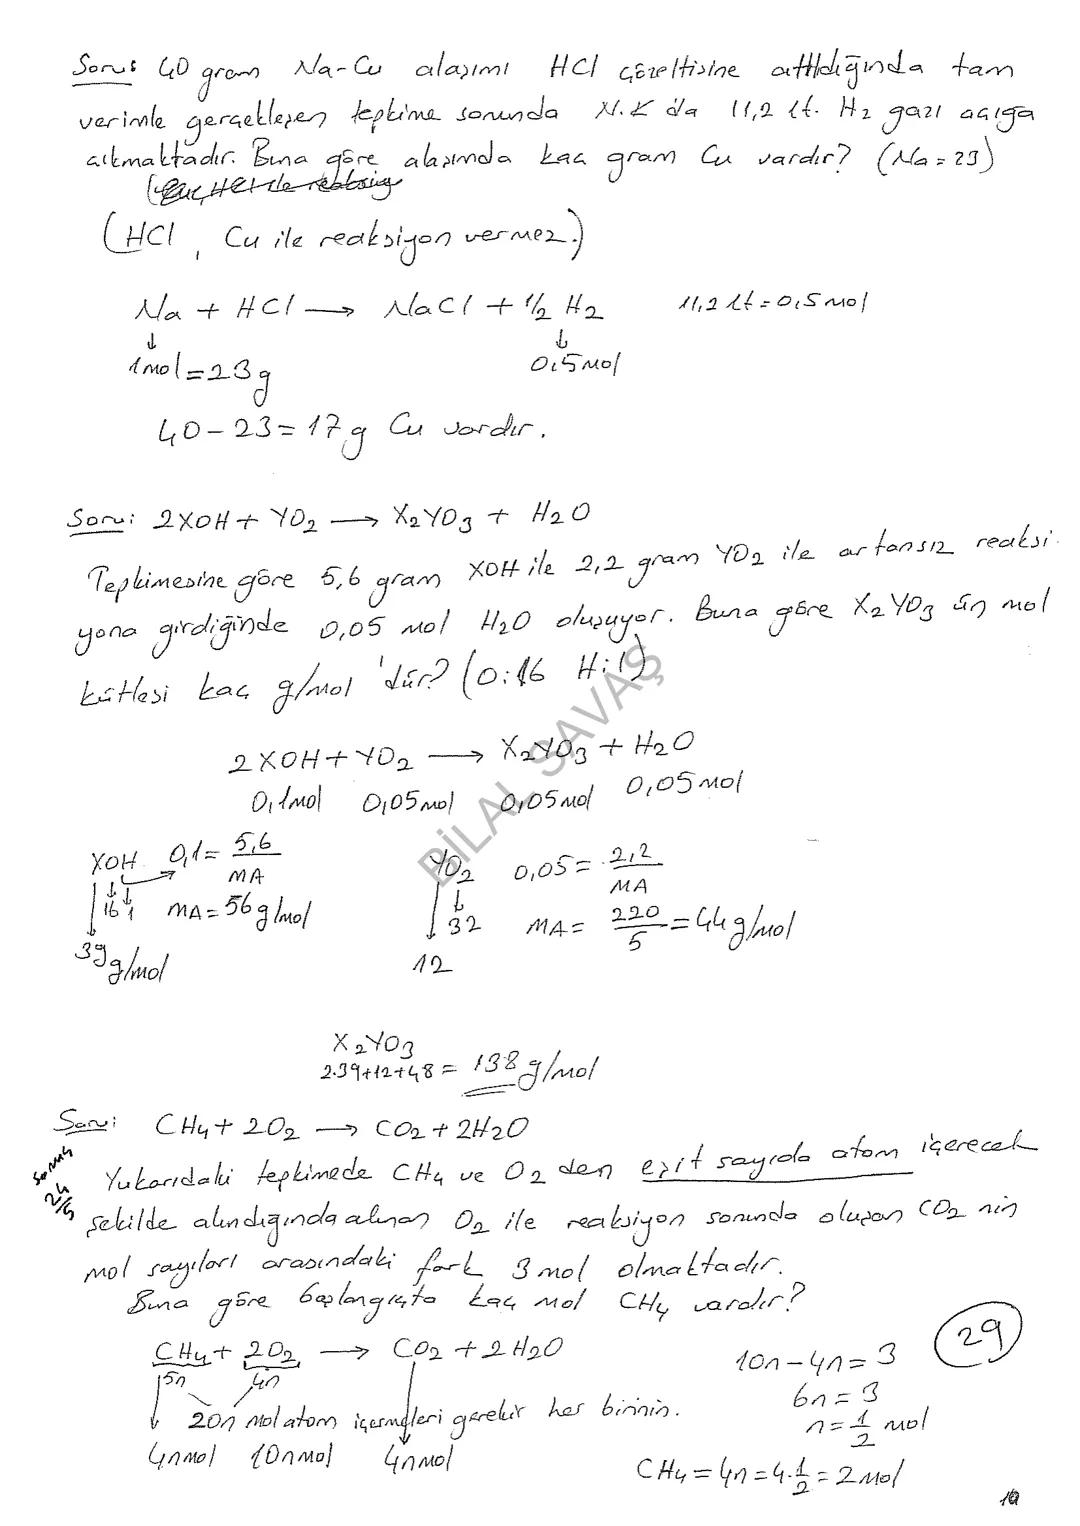 Soru: 40 gram Na-Cu alaşımı HCl çözeltisine atıldığında tam
verimle gerçekleşen tepkime sonunda N.K da 11,2 lt. H2 gazı açığa
çıkmaktadır. Buna göre alaşımda kaç gram Cu vardır? (Na=23)
(HCl, Cu ile reaksiyon vermez.)
Na + HCl → NaCl + 1/2 H2 11,2 lt = 0,5 mol
↓ ↓
1mol = 23g 0,5 mol
40 - 23 = 17g Cu vardır.
Soru: 2XOH + YO2 → X2YO3 + H2O
Tepkimesine göre 5,6 gram XOH ile 2,2 gram YO2 ile artansız reaksi-
yona girdiğinde 0,05 mol H2O oluşuyor. Buna göre X2YO3 ün mol
kütlesi kaç g/mol 'dür? (O:16 H:1)
2XOH + YO2 → X2YO3 + H2O
0,1mol 0,05mol 0,05mol 0,05mol
XOH 0,1 = 5,6/MA YO2 0,05 = 2,2/MA
16 1 MA = 56g/mol 32 MA = 220/5 = 44g/mol
39g/mol 12
X2YO3
2.39+12+48 = 138 g/mol
BİLAL SAVAŞ
Soru: CH4 + 2O2 → CO2 + 2H2O
24
Yukarıdaki tepkimede CH4 ve O2 den eşit sayıda atom içerecek
şekilde alındığında alınan O2 ile reaksiyon sonunda oluşan CO2 nin
mol sayıları arasındaki fark 3 mol olmaktadır.
Buna göre başlangıçta kaç mol CH4 vardır?
29
CH4 + 2O2 → CO2 + 2H2O 10n-4n=3
5n 4n 6n=3
20n mol atom içermeleri gerekir her birinin. n=1/2 mol
4n mol 10n mol 4n mol
CH4=4n=4.1/2=2mol